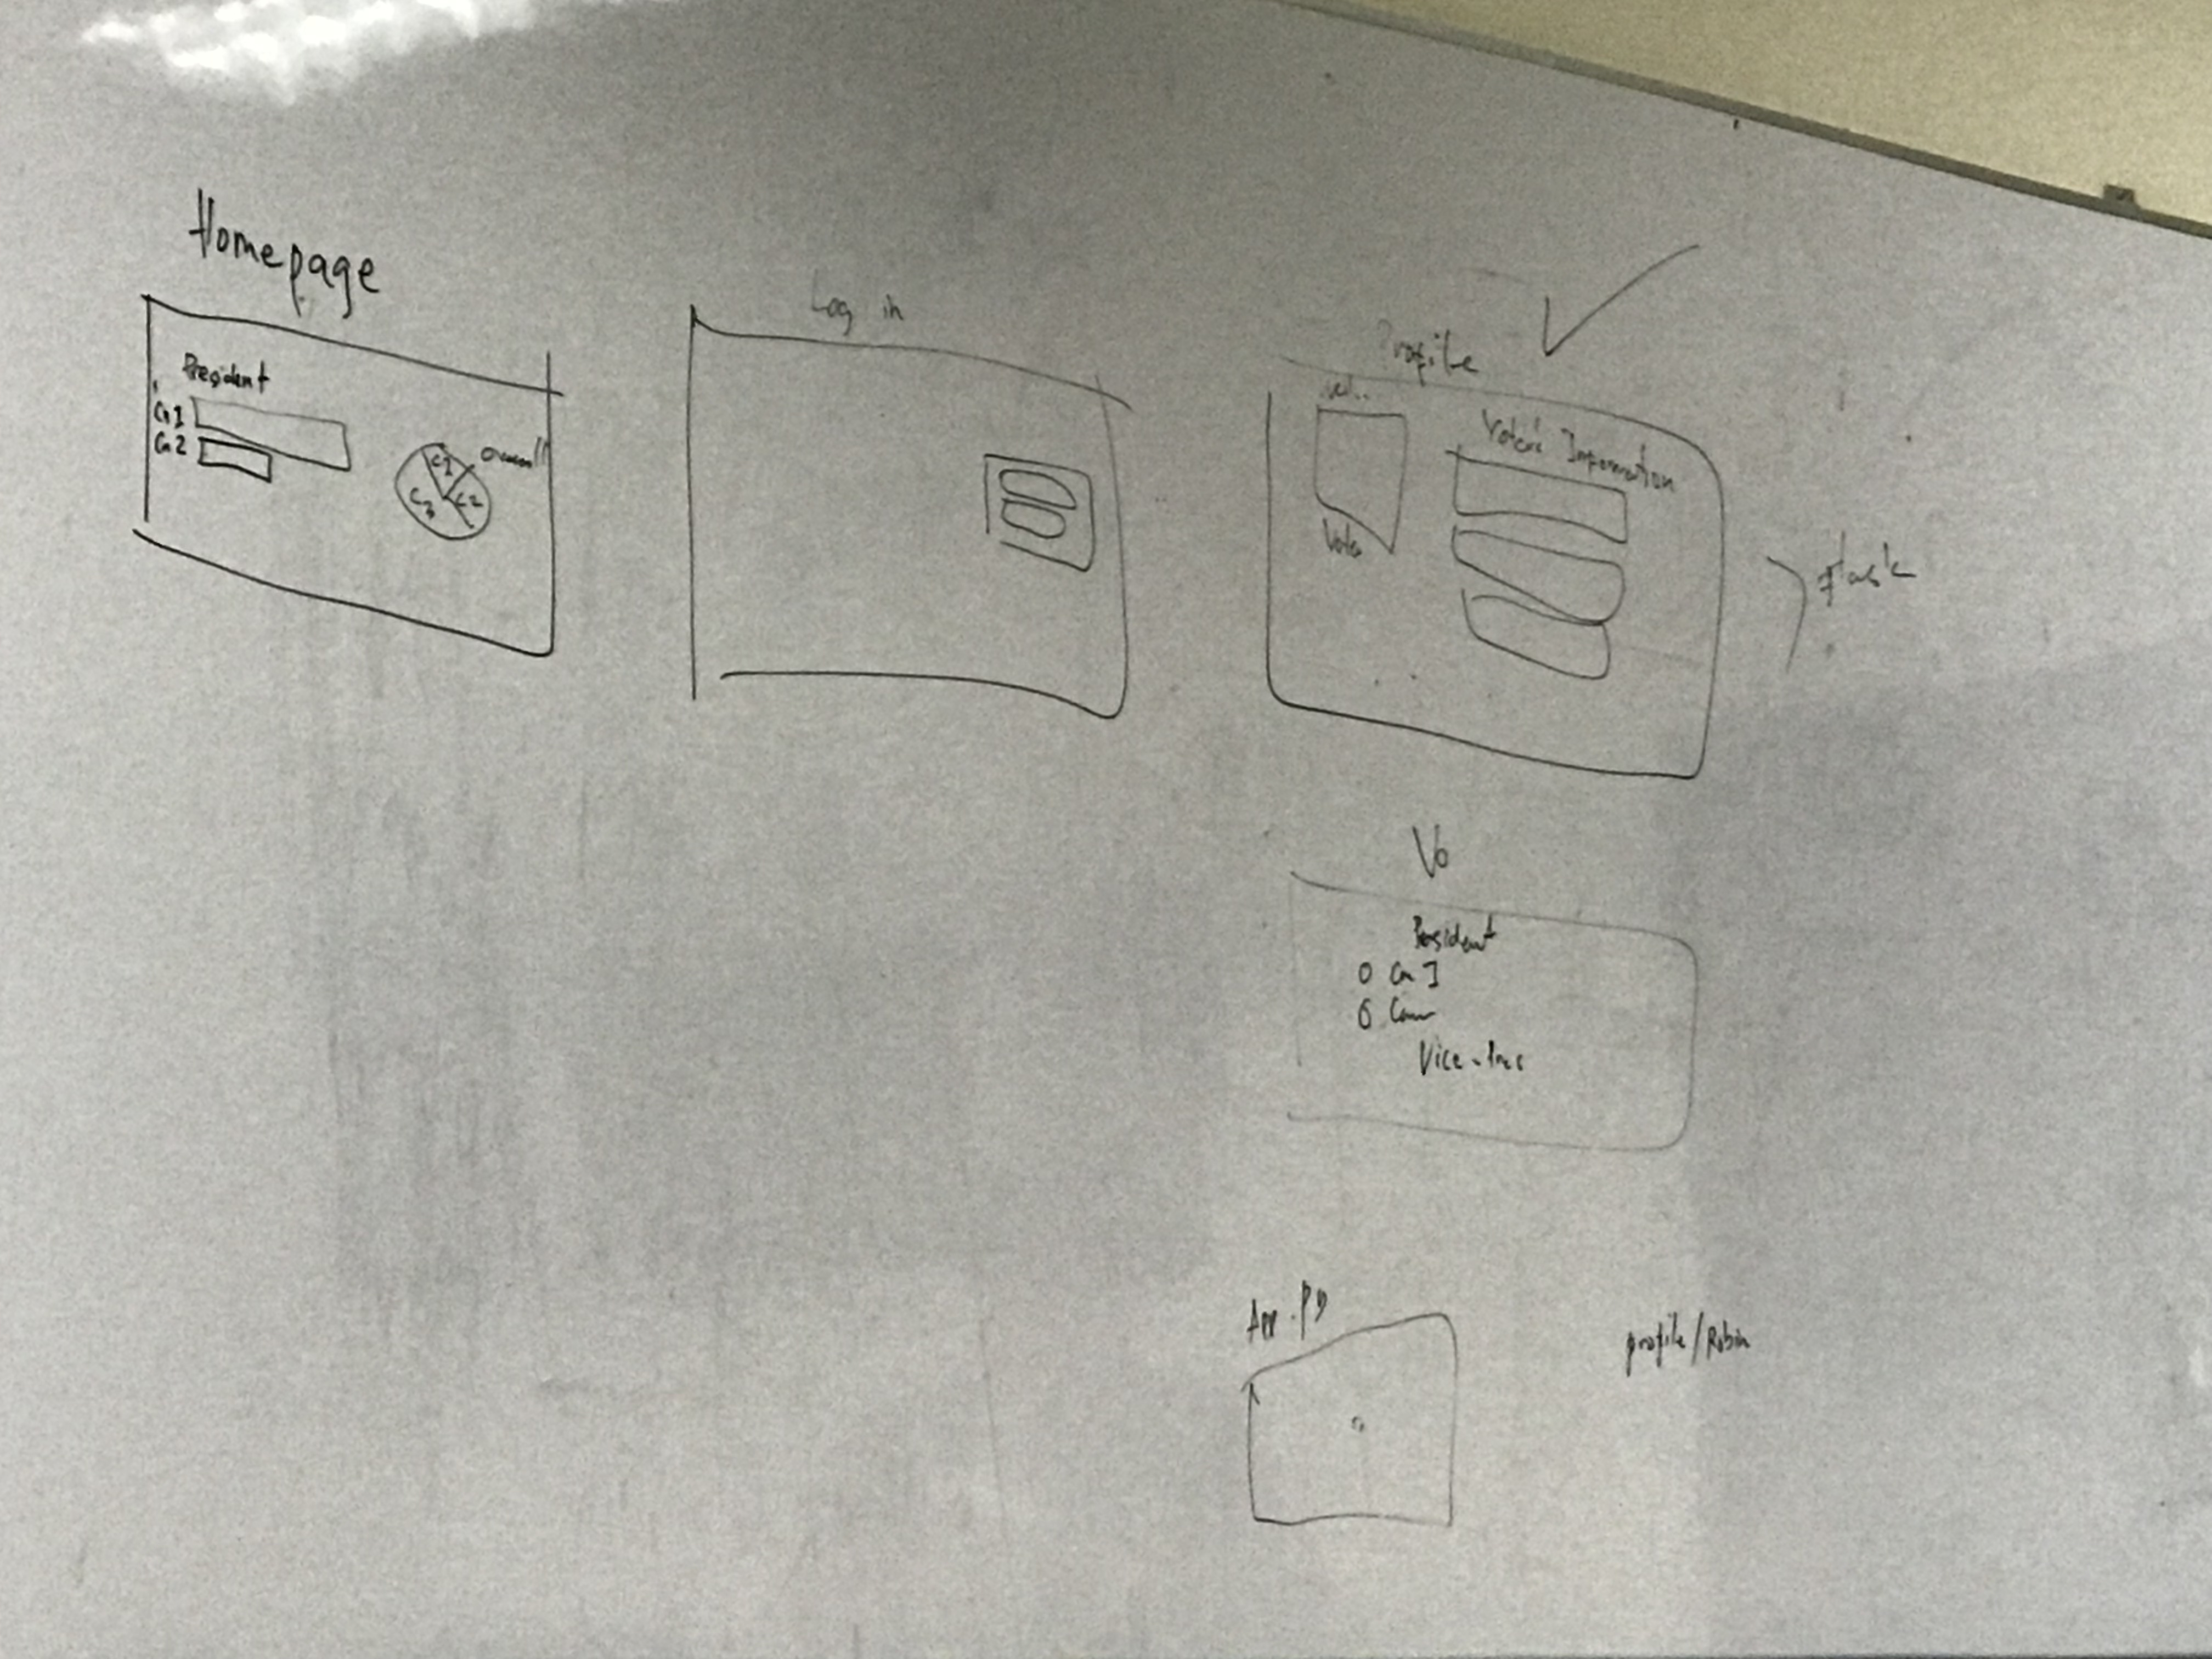 Homepage
President
Ca 1
Ca 2
C1
C2
C3
Overall
Log in
Profile
Vote
Voter's Information
Flask
Vo
President
O Ca 1
O Can
Vice-Pres
App.py
profile/Robin